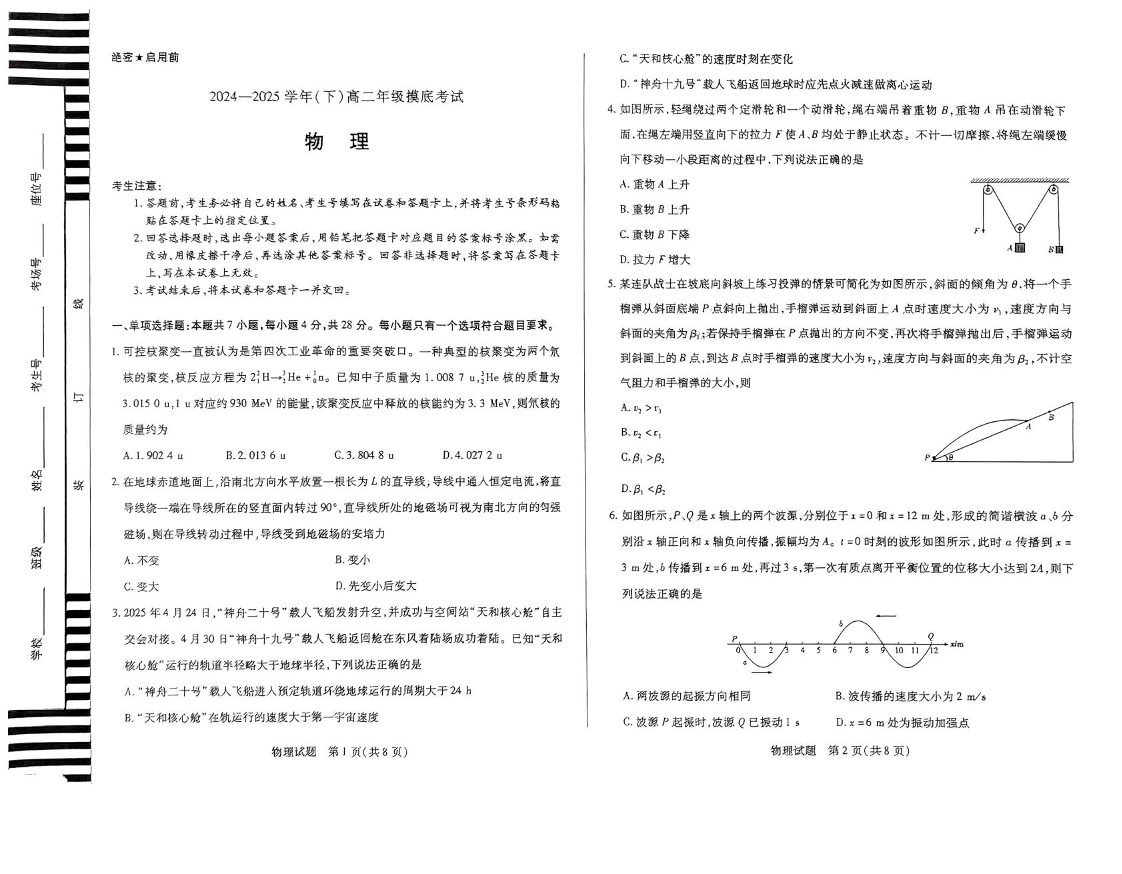 绝密★启用前
2024—2025学年(下)高二年级摸底考试
物 理
考生注意:
1. 答题前,考生务必将自己的姓名、考生号填写在试卷和答题卡上,并将考生号条形码粘
贴在答题卡上的指定位置。
2. 回答选择题时,选出每小题答案后,用铅笔把答题卡对应题目的答案标号涂黑。如需
改动,用橡皮擦干净后,再选涂其他答案标号。回答非选择题时,将答案写在答题卡
上,写在本试卷上无效。
3. 考试结束后,将本试卷和答题卡一并交回。
一、单项选择题:本题共7小题,每小题4分,共28分。每小题只有一个选项符合题目要求。
1. 可控核聚变一直被认为是第四次工业革命的重要突破口。一种典型的核聚变为两个氘
核的聚变,核反应方程为 2²₁H→³₂He+¹₀n。已知中子质量为1.008 7 u,³₂He核的质量为
3.015 0 u,1 u对应约930 MeV的能量,该聚变反应中释放的核能约为3.3 MeV,则氘核的
质量约为
A. 1.902 4 u B. 2.013 6 u C. 3.804 8 u D. 4.027 2 u
2. 在地球赤道地面上,沿南北方向水平放置一根长为L的直导线,导线中通入恒定电流,将直
导线绕一端在导线所在的竖直面内转过90°,直导线所处的地磁场可视为南北方向的匀强
磁场,则在导线转动过程中,导线受到地磁场的安培力
A. 不变 B. 变小
C. 变大 D. 先变小后变大
3. 2025年4月24日,“神舟二十号”载人飞船发射升空,并成功与空间站“天和核心舱”自主
交会对接。4月30日“神舟十九号”载人飞船返回舱在东风着陆场成功着陆。已知“天和
核心舱”运行的轨道半径略大于地球半径,下列说法正确的是
A. “神舟二十号”载人飞船进入预定轨道环绕地球运行的周期大于24 h
B. “天和核心舱”在轨运行的速度大于第一宇宙速度
物理试题 第1页(共8页)
C. “天和核心舱”的速度时刻在变化
D. “神舟十九号”载人飞船返回地球时应先点火减速做离心运动
4. 如图所示,轻绳绕过两个定滑轮和一个动滑轮,绳右端吊着重物B,重物A吊在动滑轮下
面,在绳左端用竖直向下的拉力F使A、B均处于静止状态。不计一切摩擦,将绳左端缓慢
向下移动一小段距离的过程中,下列说法正确的是
A. 重物A上升
B. 重物B上升
C. 重物B下降
D. 拉力F增大
F
A
B
5. 某连队战士在坡底向斜坡上练习投弹的情景可简化为如图所示,斜面的倾角为θ,将一个手
榴弹从斜面底端P点斜向上抛出,手榴弹运动到斜面上A点时速度大小为v₁,速度方向与
斜面的夹角为β₁;若保持手榴弹在P点抛出的方向不变,再次将手榴弹抛出后,手榴弹运动
到斜面上的B点,到达B点时手榴弹的速度大小为v₂,速度方向与斜面的夹角为β₂,不计空
气阻力和手榴弹的大小,则
A. v₂>v₁
B. v₂<v₁
C. β₁>β₂
D. β₁<β₂
P
θ
A
B
6. 如图所示,P、Q是x轴上的两个波源,分别位于x=0和x=12 m处,形成的简谐横波a、b分
别沿x轴正向和x轴负向传播,振幅均为A。t=0时刻的波形如图所示,此时a传播到x=
3 m处,b传播到x=6 m处,再过3 s,第一次有质点离开平衡位置的位移大小达到2A,则下
列说法正确的是
b
P Q
0 1 2 3 4 5 6 7 8 9 10 11 12 x/m
a
A. 两波源的起振方向相同 B. 波传播的速度大小为2 m/s
C. 波源P起振时,波源Q已振动1 s D. x=6 m处为振动加强点
物理试题 第2页(共8页)
学校
班级
姓名
考生号
考场号
座位号
装
订
线